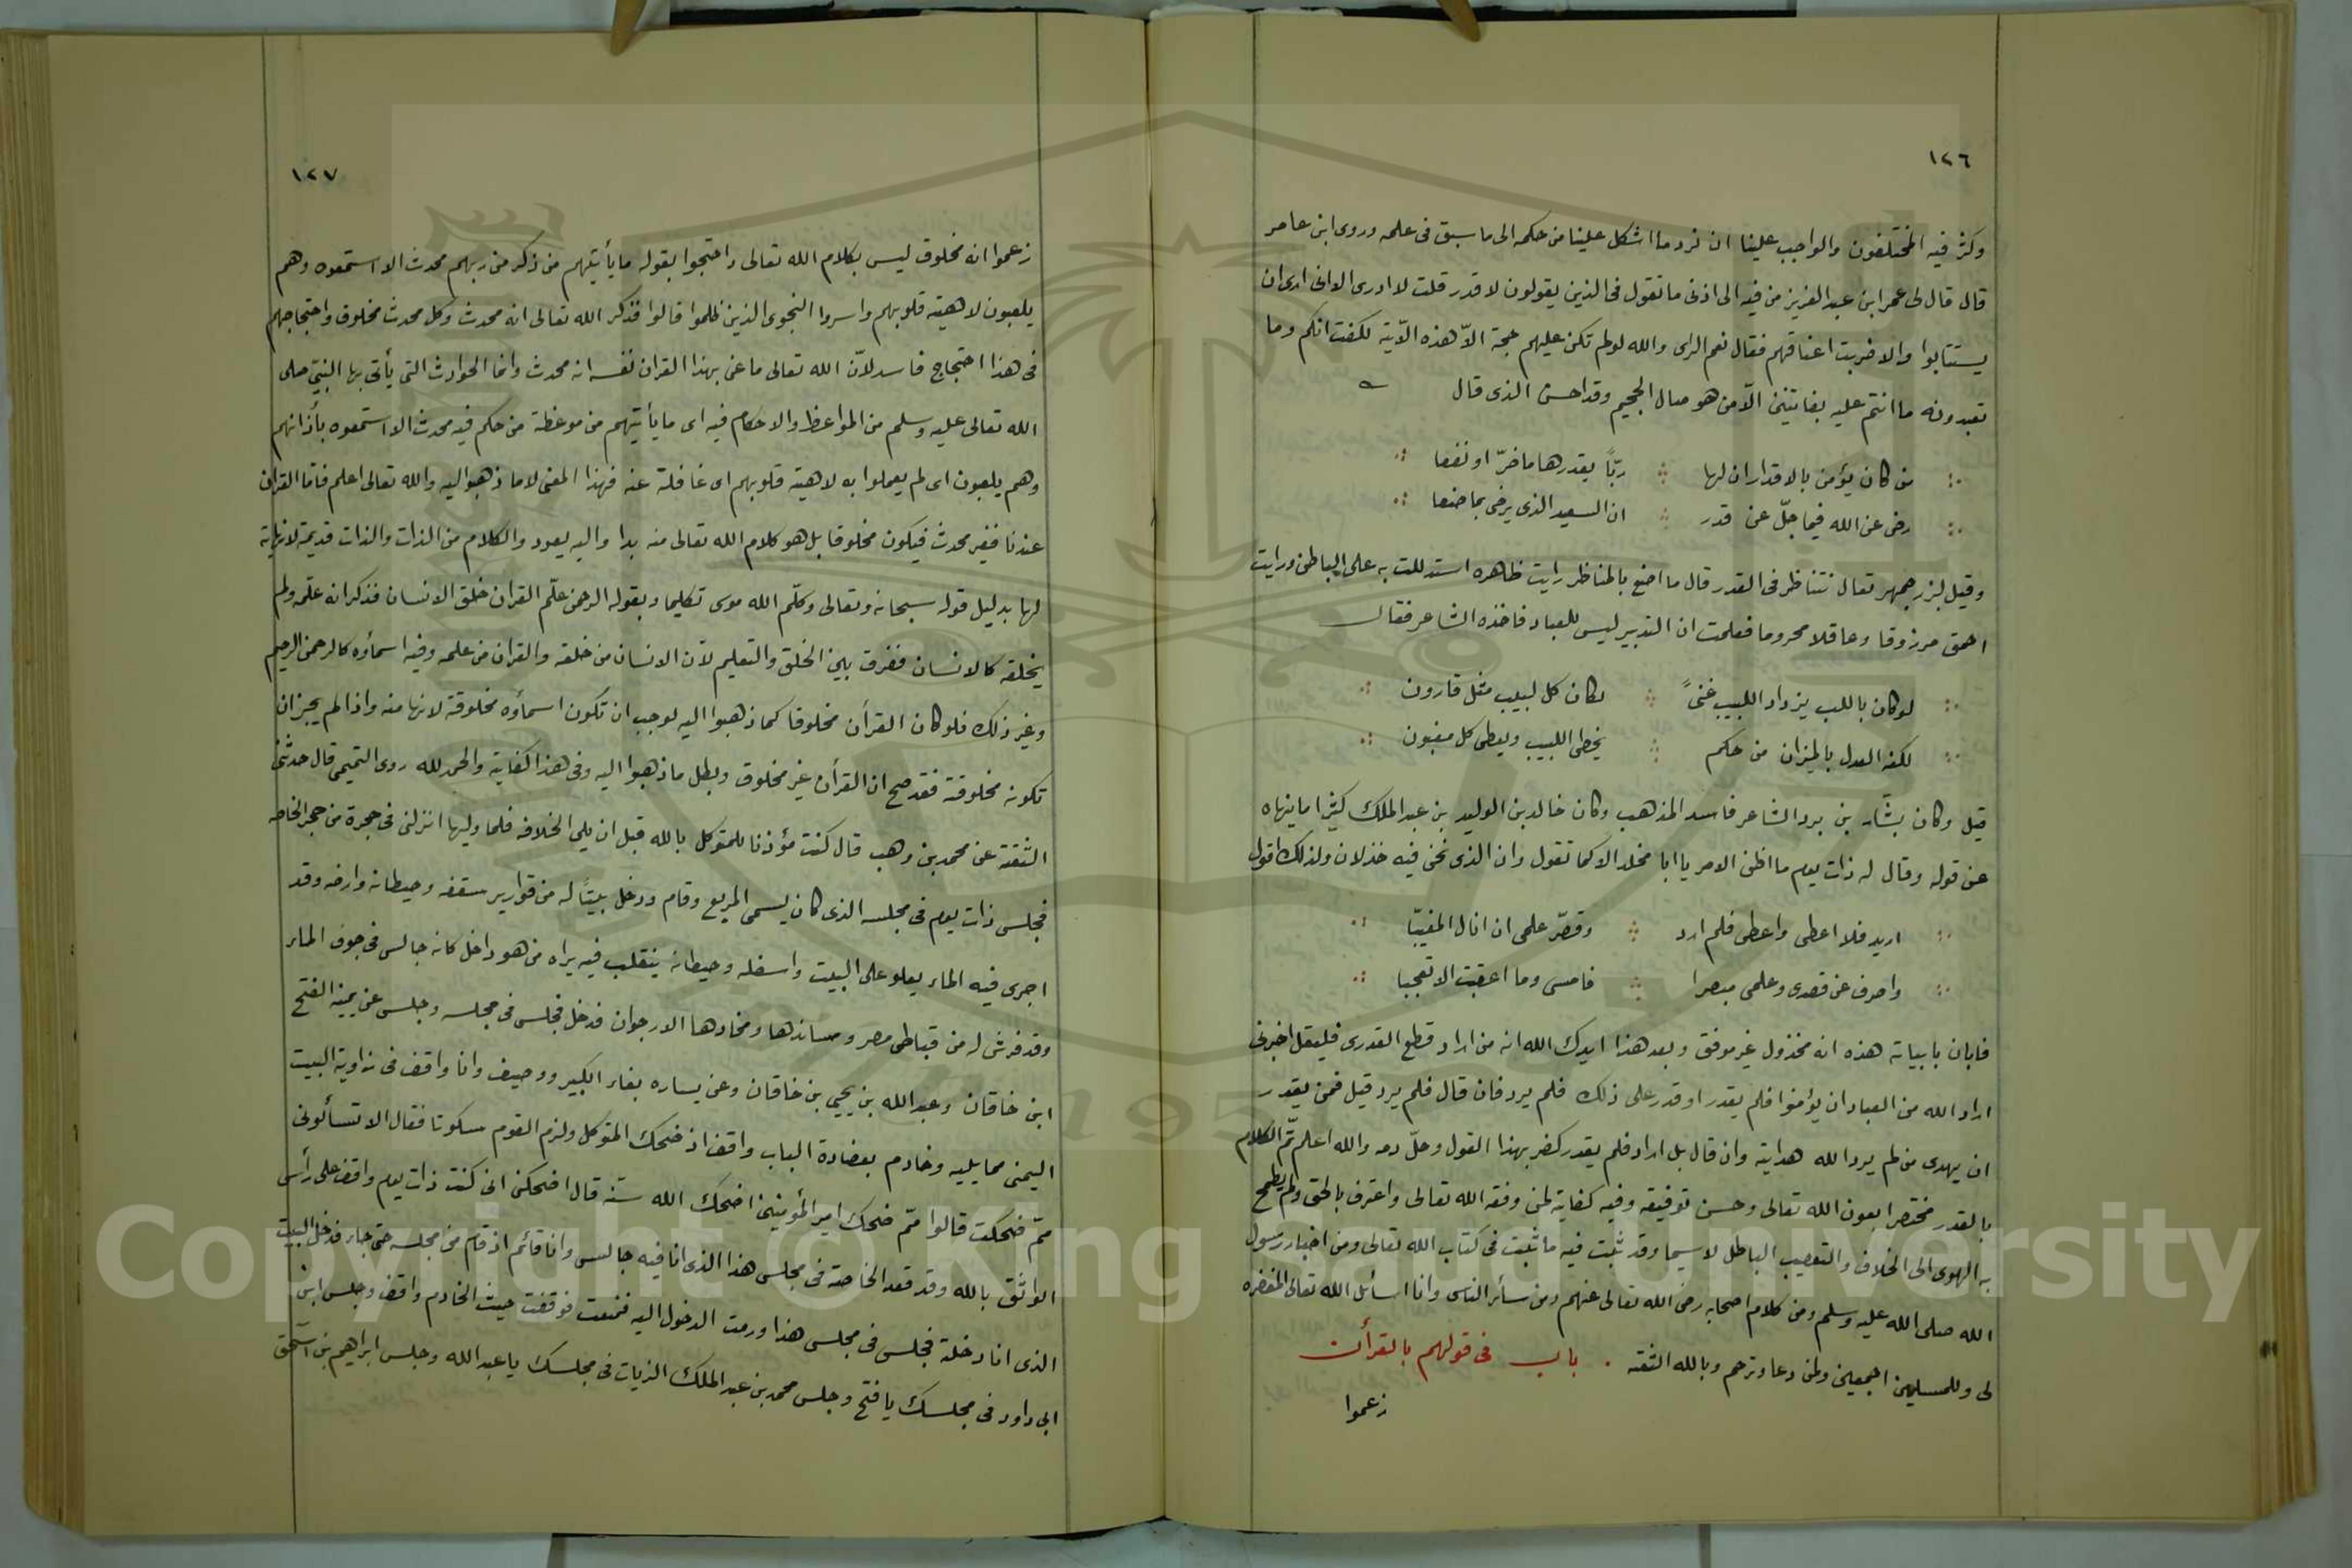 ١٢٦
وكثر فيه المختلفون والواجب علينا ان نرد ما اشكل علينا من حكمه الى ما سبق فى علمه وروى ابن عامر
قال قال لى عمر ابن عبد العزيز من فيه الى اذنى ما تقول فى الذين يقولون لا قدر قلت لا ادرى الا انى ارى ان
يستتابوا والا ضربت اعناقهم فقال نعم الراى والله لو لم تكن عليهم حجة الاّ هذه الاّية لكفت انكم وما
تعبدونه ما انتم عليه بفاتنين الاّ من هو صال الجحيم وقد احسن الذى قال
من كان يؤمن بالاقدار ان لها ربّاً يقدرها ما ضرّ او نفعا
رضى عن الله فيما جلّ عن قدر ان السعيد الذى يرضى بما صنعا
وقيل لبزرجمهر تعال نتناظر فى القدر قال ما اصنع بالمناظر رايت ظاهره استدللت به على الباطن ورايت
احمق مرزوقا وعاقلا محروما فعلمت ان التدبير ليس للعباد فاخذه الشاعر فقال
لو كان باللب يزداد اللبيب غنىً لكان كل لبيب مثل قارون
لكنه العدل بالميزان من حكم يخطى اللبيب ويعطى كل مغبون
قيل وكان بشّار بن برد الشاعر فاسد المذهب وكان خالد بن الوليد بن عبد الملك كثيرا ما ينهاه
عن قوله وقال له ذات يوم ما اظن الامر يا ابا مخلد الا كما تقول وان الذى نحن فيه خذلان ولذلك اقول
اريد فلا اعطى واعطى فلم ارد وقصّر علمى ان انال المغيبّا
واصرف عن قصدى وعلمى مبصرا فامسى وما اعقبت الا تعجبا
فابان بابياته هذه انه مخذول غير موفق وبعد هذا ايدك الله انه من اراد قطع القدرى فليقل اخبرنى
اراد الله من العباد ان يؤمنوا فلم يقدر او قدر على ذلك فلم يرد فان قال فلم يرد قيل فمن يقدر
ان يهدى من لم يرد الله هدايته وان قال بل اراد فلم يقدر كفر بهذا القول وحلّ دمه والله اعلم تمّ الكلام
بالقدر مختصرا بعون الله تعالى وحسن توفيقه وفيه كفاية لمن وفقه الله تعالى واعترف بالحق ولم يطمح
به الهوى الى الخلاف والتعصيب الباطل لاسيما وقد ثبت فيه ما ثبت فى كتاب الله تعالى ومن اخبار رسول
الله صلى الله عليه وسلم ومن كلام اصحابه رضى الله تعالى عنهم ومن سأئر الناس وانا اسأئل الله تعالى المغفره
لى وللمسلمين اجمعين ولمن دعا وترحم وبالله الثقه . باب فى قولهم بالقرأن
زعموا
١٢٧
زعموا انه مخلوق ليس بكلام الله تعالى واحتجوا بقوله ما يأتيهم من ذكر من ربهم محدث الا استمعوه وهم
يلعبون لاهية قلوبهم واسروا النجوى الذين ظلموا قالوا فذكر الله تعالى انه محدث وكل محدث مخلوق واحتجاجهم
فى هذا احتجاج فاسد لاّن الله تعالى ما عنى بهذا القران نفسه انه محدث وانما الحوادث التى يأتى بها النبىّ صلى
الله تعالى عليه وسلم من المواعظ والاحكام فيه اى ما يأتيهم من موعظة من حكم فيه محدث الا استمعوه بأذانهم
وهم يلعبون اى لم يعملوا به لاهية قلوبهم اى غافلة عنه فهذا المعنى لا ما ذهبوا اليه والله تعالى اعلم فاما القران
عندنا فغير محدث فيكون مخلوقا بل هو كلام الله تعالى منه بدا واليه يعود والكلام من الذات والذات قديمة لا نهاية
لها بدليل قوله سبحانه وتعالى وكلّم الله موسى تكليما وبقوله الرحمن علّم القران خلق الانسان فذكر انه علّمه ولم
يخلقه كالانسان ففرق بين الخلق والتعليم لاّن الانسان من خلقه والقران من علمه وفيه اسمأؤه كالرحمن الرحيم
وغير ذلك فلو كان القرأن مخلوقا كما ذهبوا اليه لوجب ان تكون اسمأؤه مخلوقة لانها منه واذا لم يجز ان
تكونه مخلوقة فقد صح ان القرأن غير مخلوق وبطل ما ذهبوا اليه وفى هذا كفاية والحمد لله روى التميمى قال حدثنى
الثقة عن محمد بن وهب قال كنت مؤذنا للمتوكل بالله قبل ان يلى الخلافه فلما وليها انزلنى فى حجرة من حجر الخاصه
فجلس ذات يوم فى مجلسه الذى كان يسمى المربع وقام ودخل بيتاً له من قوارير سقفه وحيطانه وارضه وقد
اجرى فيه الماء يعلو على البيت واسفله وحيطانه ينقلب فيه يراه من هو داخل كانه جالس فى جوف الماء
وقد فرش له من قباطى مصر ومساندها ومخادها الارجوان فدخل فجلس فى مجلسه وجلس عن يمينه الفتح
ابن خاقان وعبد الله بن يحيى بن خاقان وعن يساره بغاء الكبير ووصيف وانا واقف فى زاوية البيت
اليمنى مما يليه وخادم بعضادة الباب واقف اذ ضحك المتوكل ولزم القوم سكوتا فقال الا تسألونى
ممّ ضحكت قالوا ممّ ضحك امير المؤمنين اضحك الله سنّه قال اضحكنى انى كنت ذات يوم واقف على رأس
الواثق بالله وقد قعد الخاصة فى مجلس هذا الذى انا فيه جالس وانا قائم اذ قام من مجلسه حتى جاء فدخل البيت
الذى انا دخلته فجلس فى مجلس هذا ورمت الدخول اليه فمنعت فوقفت حيث الخادم واقف وجلس ابن
ابى داود فى مجلسك يا فتح وجلس محمد بن عبد الملك الزيات فى مجلسك يا عبد الله وجلس ابراهيم بن اسحق
Copyright © King Saud University
195